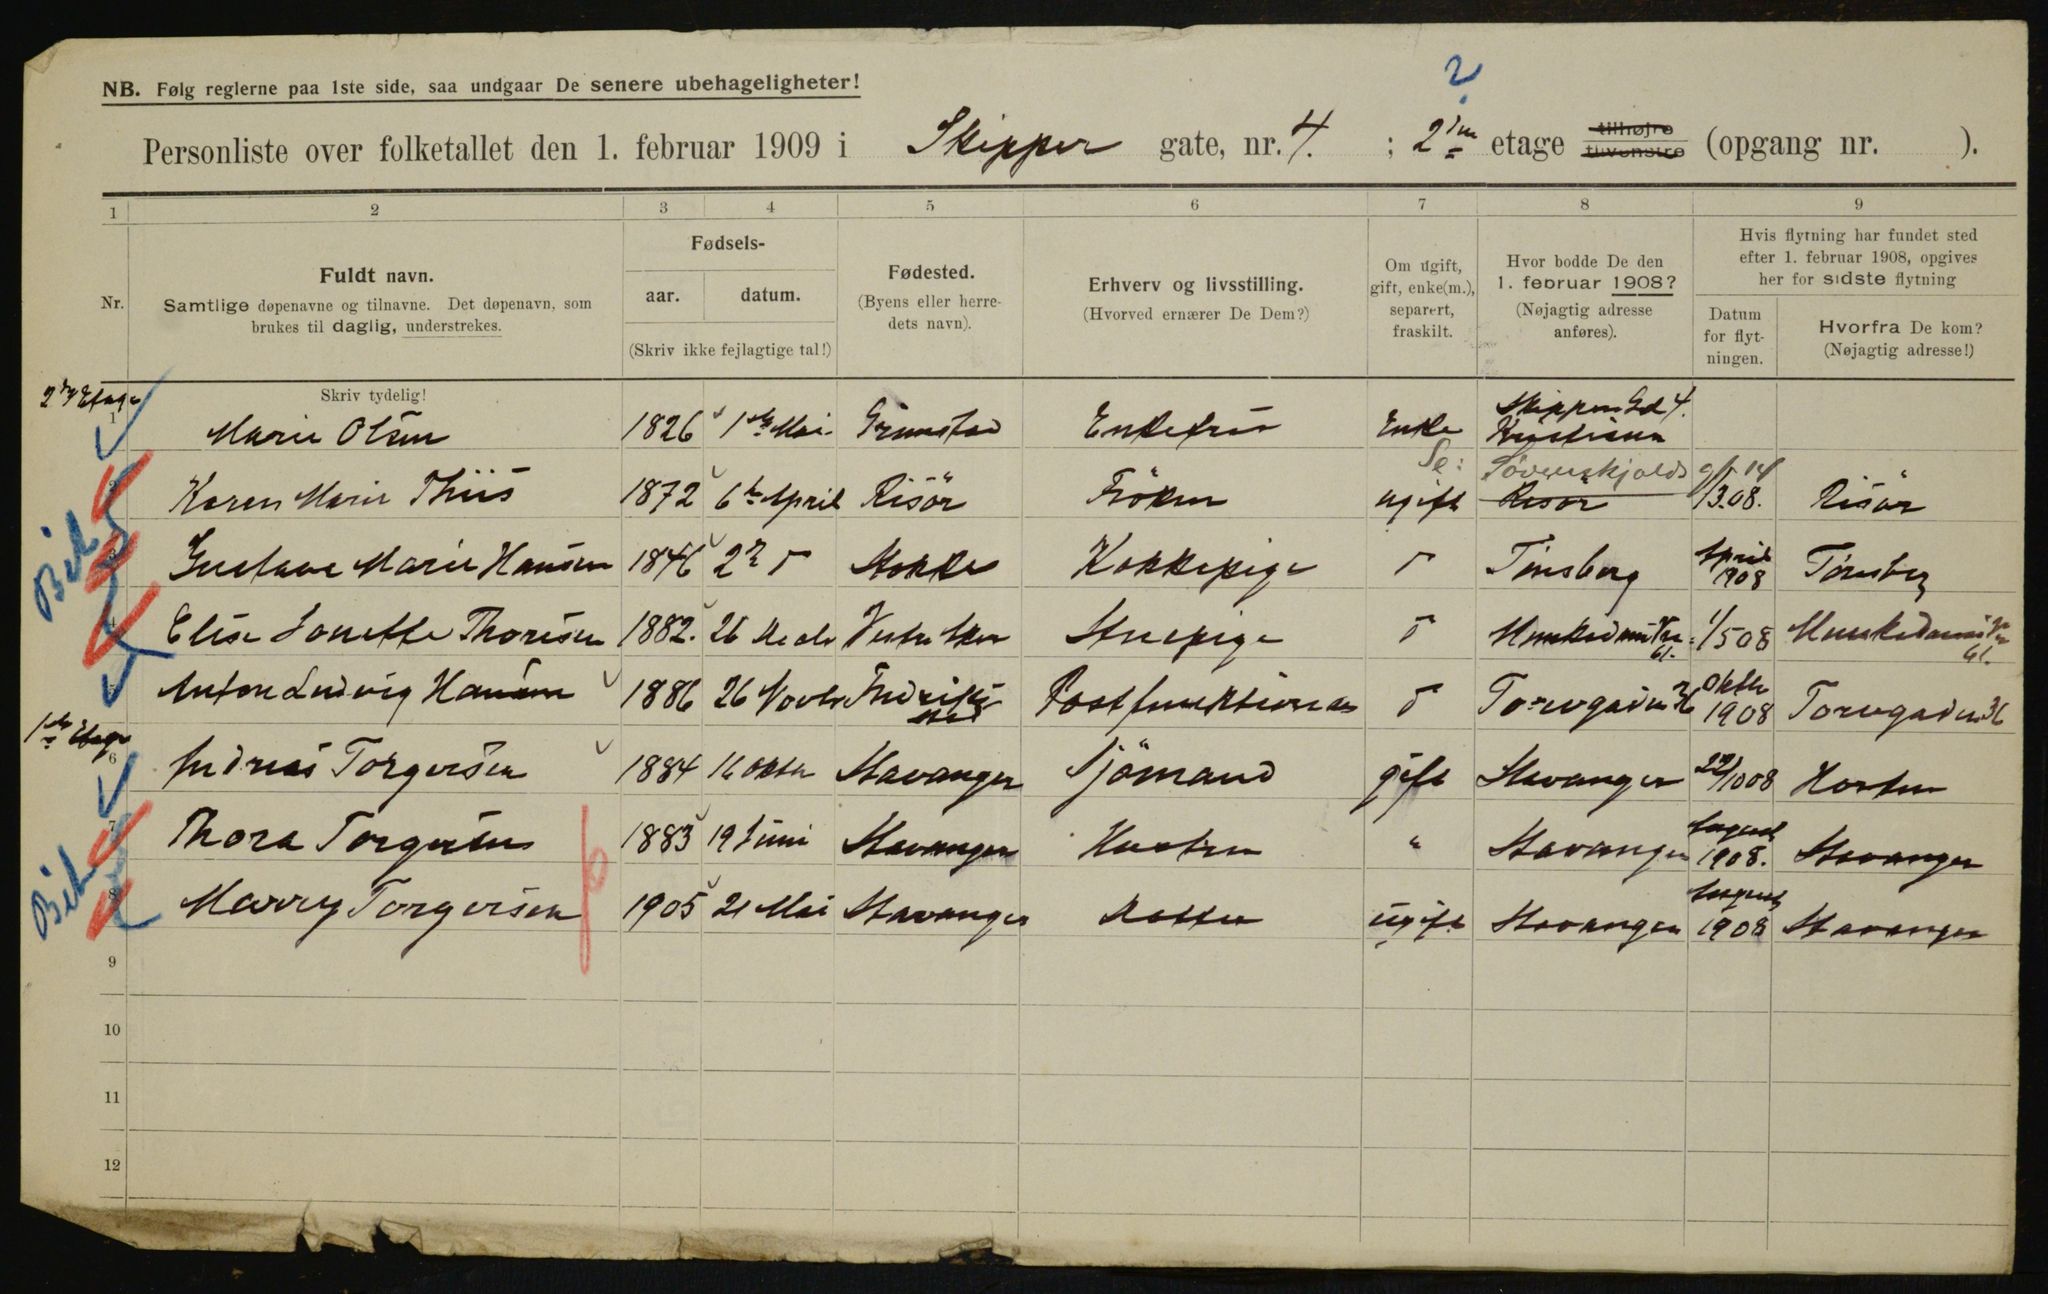 NB. Følg reglerne paa 1ste side, saa undgaar De senere ubehageligheter!
2
Personliste over folketallet den 1. februar 1909 i Skipper gate, nr. 4. ; 2den etage tilhøjre tilvenstre (opgang nr. ).
1 2 3 4 5 6 7 8 9
Nr.
Fuldt navn.
Samtlige døpenavne og tilnavne. Det døpenavn, som
brukes til daglig, understrekes.
Skriv tydelig!
Fødsels-
aar. datum.
(Skriv ikke fejlagtige tal!)
Fødested.
(Byens eller herre-
dets navn).
Erhverv og livsstilling.
(Hvorved ernærer De Dem?)
Om ugift,
gift, enke(m.),
separert,
fraskilt.
Hvor bodde De den
1. februar 1908?
(Nøjagtig adresse
anføres).
Hvis flytning har fundet sted
efter 1. februar 1908, opgives
her for sidste flytning
Datum
for flyt-
ningen.
Hvorfra De kom?
(Nøjagtig adresse!)
2den Etage
1 Marie Olsen 1826 1ste Mai Grimstad Enkefru Enke Skipper Gd 4. Kristiania
2 Karen Marie Thiis 1872 6te April Risör Fröken ugift Risör /3.08. Risör
3 Gustava Marie Hansen 1846 2n " Stokke Kokkepige " Tönsberg April 1908 Tönsberg
4 Elise Thoresen 1882 26 Decbr Stuepige " Munkedamsv. 61. 1/5 08 Munkedamsv. 61.
5 Anton Ludvig Hansen 1886 26 Novbr Fredrikstad Postfunktionær " Torvgaden 36 Oktbr 1908 Torvgaden 36
1ste Etage
6 Andreas Torgersen 1884 16 oktbr Stavanger Sjömand gift Stavanger 29/10 08 Horten
7 Thora Torgersen 1883 19 Juni Stavanger Hustru " Stavanger August 1908. Stavanger
8 Marry Torgersen 1905 21 Mai Stavanger Datter ugift Stavanger August 1908 Stavanger
9
10
11
12